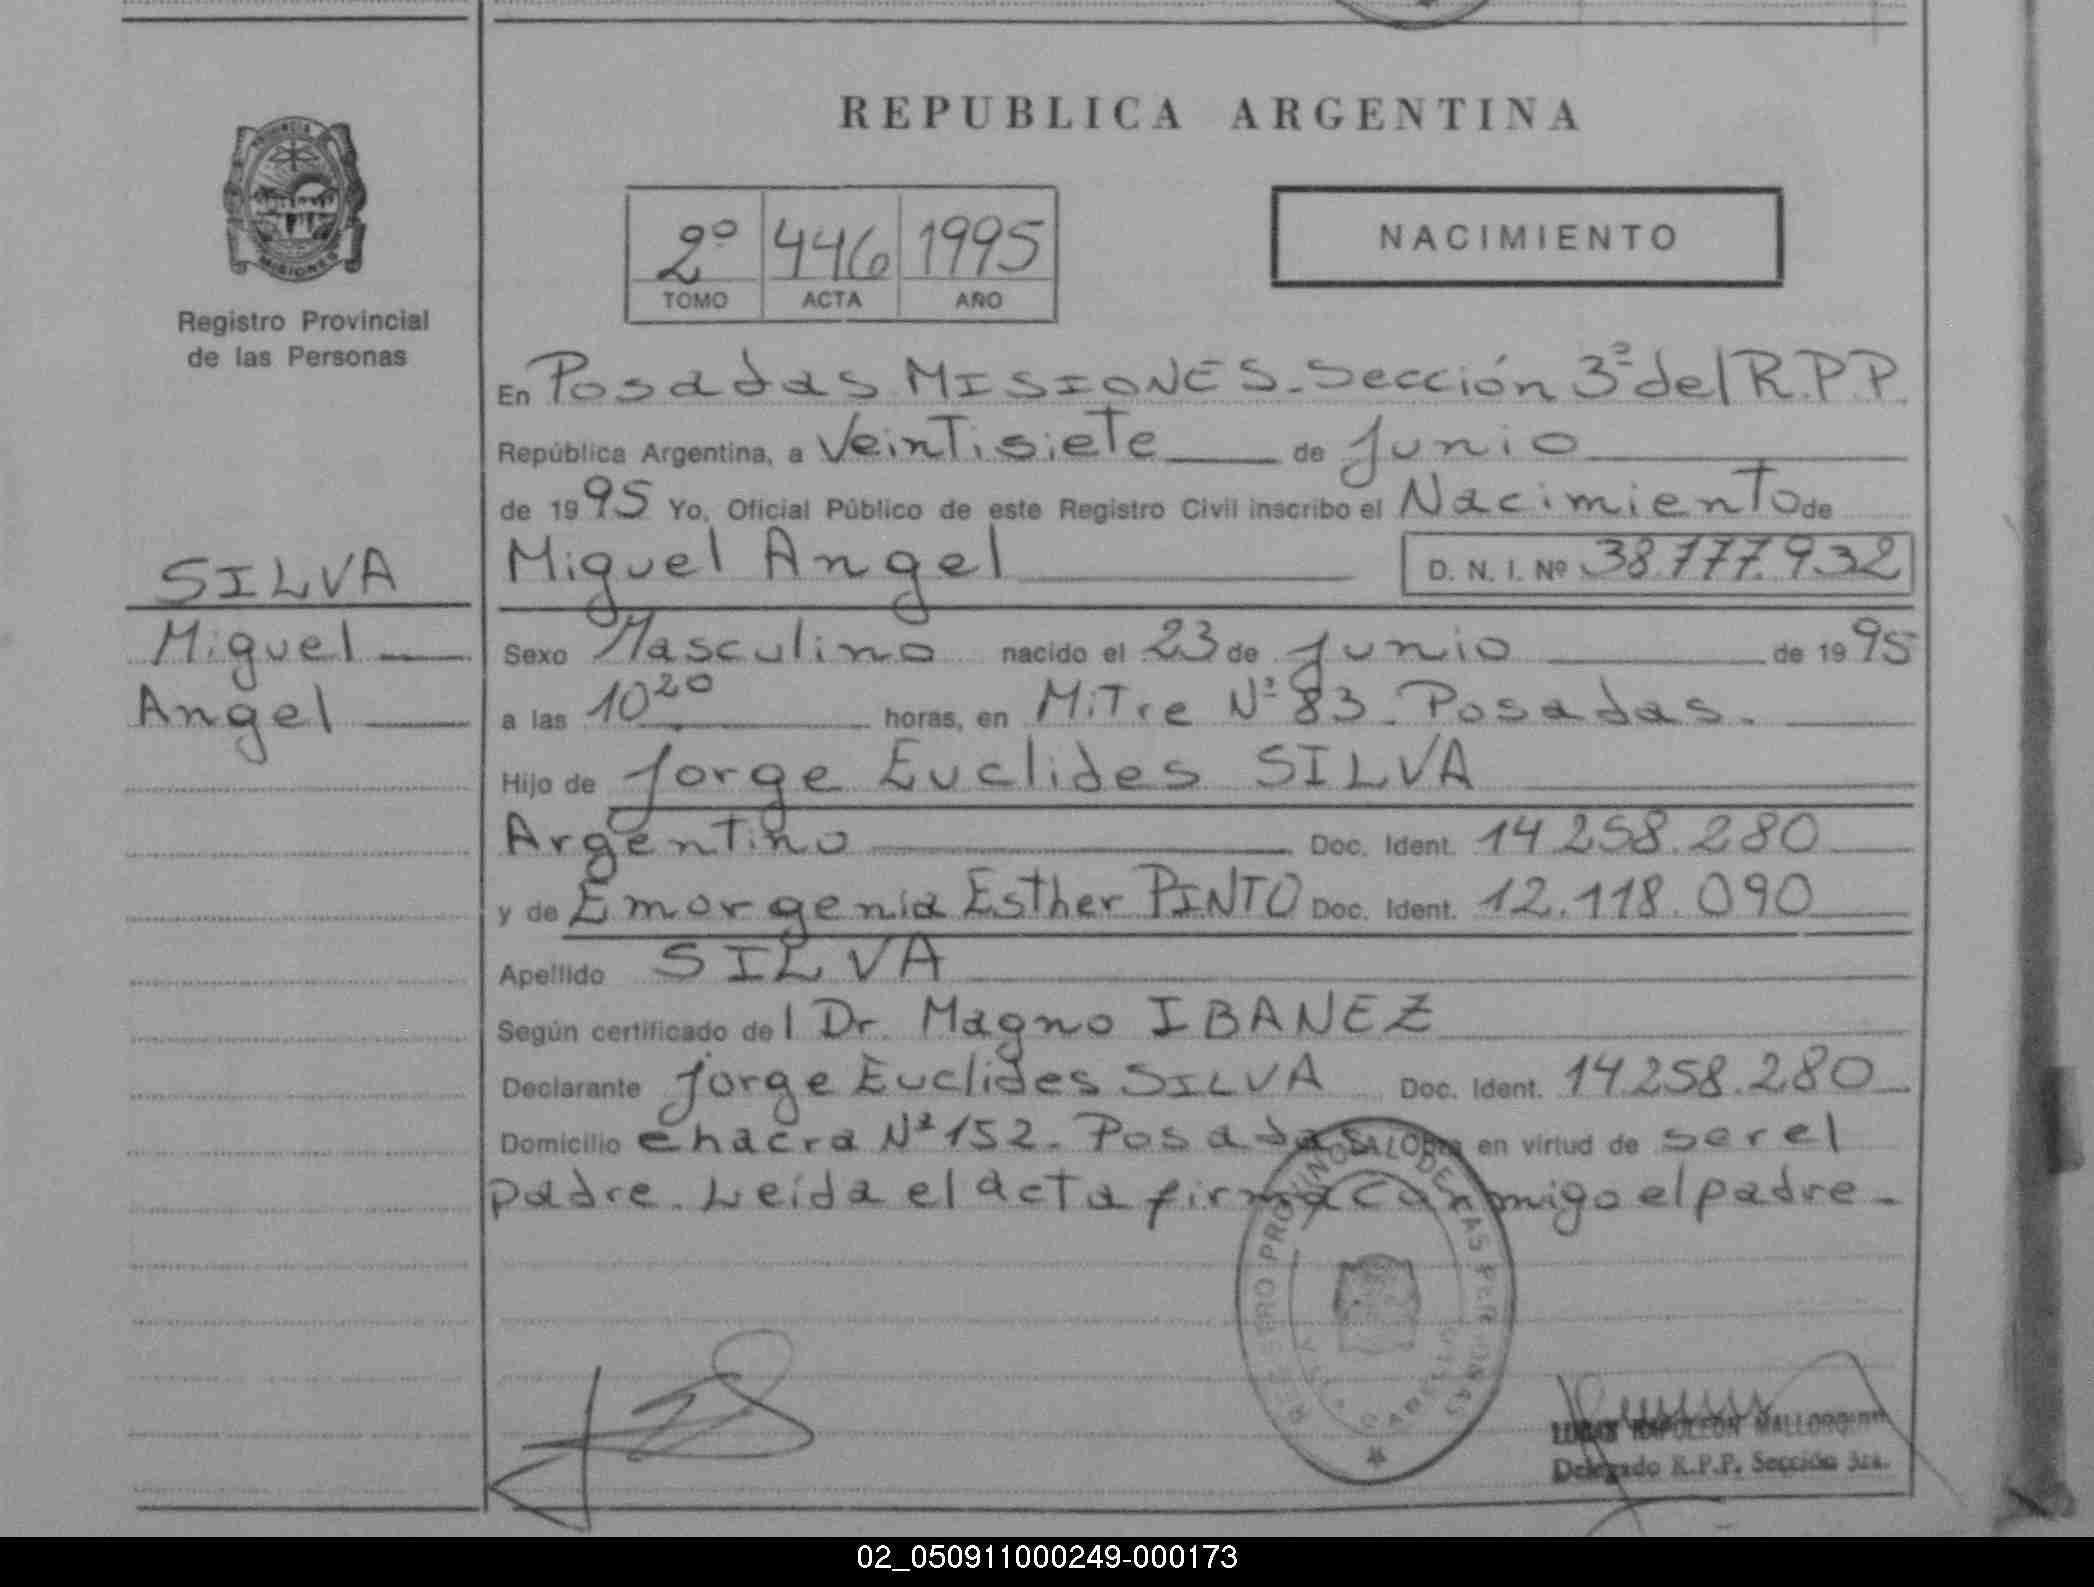 PROVINCIA
MISIONES
Registro Provincial
de las Personas
REPUBLICA ARGENTINA
2º 446 1995
TOMO ACTA AÑO
NACIMIENTO
En Posadas MISIONES. Sección 3ª del R.P.P.
República Argentina, a Veintisiete de Junio
de 1995 Yo, Oficial Público de este Registro Civil inscribo el Nacimiento de
Miguel Angel D. N. I. Nº 38.777.932
SILVA
Miguel
Angel
Sexo Masculino nacido el 23 de Junio de 1995
a las 10 20 horas, en Mitre Nº 83. Posadas.
Hijo de Jorge Euclides SILVA
Argentino Doc. Ident. 14.258.280
y de Emorgenia Esther PINTO Doc. Ident. 12.118.090
Apellido SILVA
Según certificado del Dr. Magno IBANEZ
Declarante Jorge Euclides SILVA Doc. Ident. 14.258.280
Domicilio chacra Nº 152. Posadas Obra en virtud de ser el
padre. Leída el acta firma conmigo el padre.
DE LAS
NAPOLEON
Delegado R.P.P. Sección 3ra.
02_050911000249-000173